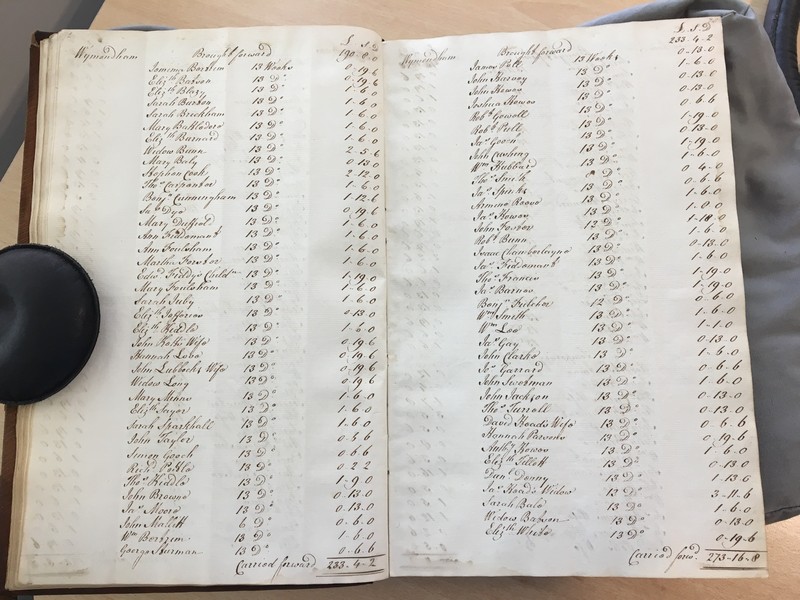 £ S. D
Wymondham Brought forward 190-0-0
Jemima Bertrem 13 Weeks 0-19-6
Eliz.th Batson 13 D.o 0-19-6
Eliz.th Blazy 13 D.o 1-6-0
Sarah Burton 13 D.o 1-6-0
Sarah Breckham 13 D.o 1-6-0
Mary Balldero 13 D.o 1-6-0
Eliz.th Barnard 13 D.o 1-6-0
Widow Bunn 13 D.o 2-5-6
Mary Baly 13 D.o 0-13-0
Stephen Cook 13 D.o 2-12-0
Tho.s Carpenter 13 D.o 1-6-0
Benj.n Cunningham 13 D.o 1-12-6
Ja.s Dye 13 D.o 0-19-6
Mary Duffield 13 D.o 1-6-0
Ann Fiddeman 13 D.o 1-6-0
Ann Foulsham 13 D.o 1-6-0
Martha Forster 13 D.o 1-6-0
Edw.d Fiddys Child.n 13 D.o 1-19-0
Mary Foulsham 13 D.o 1-6-0
Sarah Jaby 13 D.o 1-6-0
Eliz.th Jefferies 13 D.o 0-13-0
Eliz.th Keddle 13 D.o 1-6-0
John Ketts Wife 13 D.o 0-19-6
Hannah Lebo 13 D.o 0-19-6
John Lubbocks Wife 13 D.o 0-19-6
Widow Long 13 D.o 0-19-6
Mary Minns 13 D.o 1-6-0
Eliz.th Sayer 13 D.o 1-6-0
Sarah Sparkhall 13 D.o 1-6-0
John Taylor 13 D.o 0-5-6
Simon Gooch 13 D.o 0-6-6
Rich.d Poslle 13 D.o 0-2-2
Tho.s Keddle 13 D.o 1-9-0
John Browne 13 D.o 0-13-0
Ja.s Moore 13 D.o 0-13-0
John Mallett 6 D.o 0-6-0
W.m Bertrem 13 D.o 1-6-0
George Sturman 13 D.o 0-6-6
Carried forward 233-4-2
£ S. D
Wymondham Brought forward 233-4-2
James Pell 13 Weeks 0-13-0
John Harvey 13 D.o 1-6-0
John Howes 13 D.o 0-13-0
Joshua Howes 13 D.o 0-13-0
Rob.t Gowell 13 D.o 0-6-6
Rob.t Pells 13 D.o 1-19-0
Ja.s Goven 13 D.o 0-13-0
John Cushing 13 D.o 1-19-0
W.m Hubbard 13 D.o 1-6-0
Tho.s Smith 8 D.o 0-6-0
Ja.s Spinks 13 D.o 0-6-6
Armine Reeve 13 D.o 1-6-0
Ja.s Howes 13 D.o 1-0-0
John Foster 12 D.o 1-10-0
Rob.t Bunn 13 D.o 1-6-0
Isaac Chamberlayne 13 D.o 0-13-0
Ja.s Fiddeman 13 D.o 1-6-0
Tho.s Frances 13 D.o 1-19-0
Ja.s Barnes 13 D.o 1-19-0
Benj.n Fletcher 12 D.o 0-6-0
W.m Smith 13 D.o 1-6-0
W.m Lee 13 D.o 1-1-0
Ja.s Gay 13 D.o 0-13-0
John Clarke 13 D.o 1-6-0
Jo.s Garrard 13 D.o 0-6-6
John Swerman 13 D.o 1-6-0
John Jackson 13 D.o 0-13-0
Tho.s Turrell 13 D.o 0-13-0
David Hoads Wife 13 D.o 0-6-6
Hannah Parsons 13 D.o 0-19-6
Anth.y Howes 13 D.o 1-6-0
Eliz.th Tillett 13 D.o 0-13-0
Dan.l Denny 13 D.o 1-13-6
Ja.s Hoads Widow 13 D.o 3-11-6
Sarah Balo 13 D.o 1-6-0
Widow Batson 13 D.o 0-13-0
Eliz.th White 13 D.o 0-19-6
Carried forw.d 273-16-8